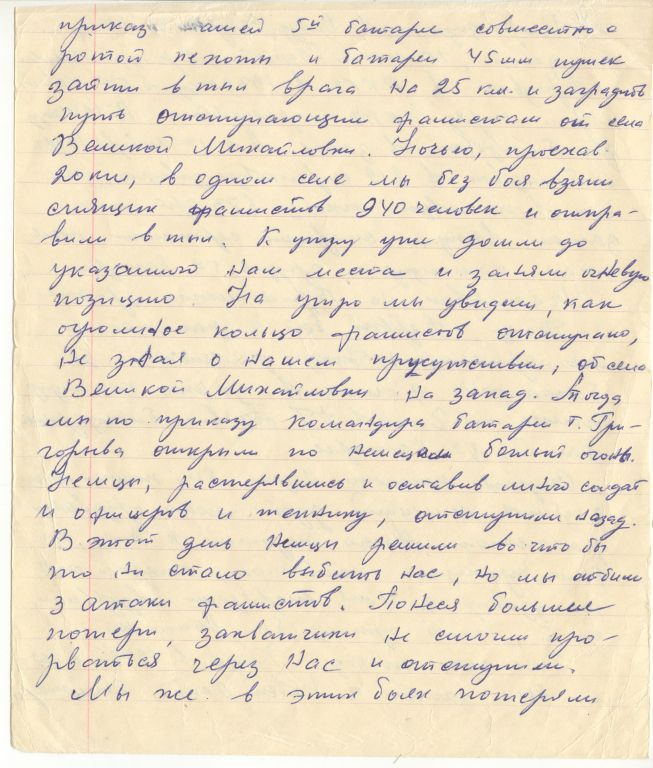 приказ нашей 5ой батареи совместно с
ротой пехоты и батареи 45 мм пушек
зайти в тыл врага на 25 км. и заградить
путь отступающим фашистам от села
Великой Михайловки. Ночью, проехав
20 км, в одном селе мы без боя взяли
спящих фашистов 940 человек и отпра-
вили в тыл. К утру уже дошли до
указанного нам места и заняли огневую
позицию. На утро мы увидели, как
огромное кольцо фашистов отступало,
не зная о нашем присутствии, от села
Великой Михайловки на запад. Тогда
мы по приказу командира батареи т. Гри-
горьева открыли по немецким беглый огонь.
Немцы, растерявшись и оставив много солдат
и офицеров и технику, отступили назад.
В этот день немцы решили во что бы
то ни стало выбить нас, но мы отбили
3 атаки фашистов. Понеся большие
потери, захватчики не смогли про-
рваться через нас и отступили.
Мы же в этих боях потеряли